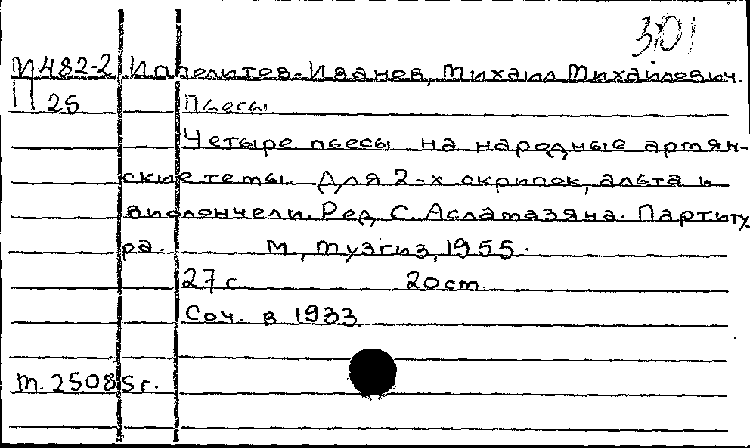 301
И 482-2 Ипполитов-Иванов, Михаил Михайлович.
П 25 Пьесы
Четыре пьесы на народные армян-
ские темы. Для 2-х скрипок, альта и
виолончели. Ред. С. Асламазяна. Партиту
ра. М., Музгиз, 1955.
27 с 20 см.
Соч. в 1933
т. 2508 5 г.